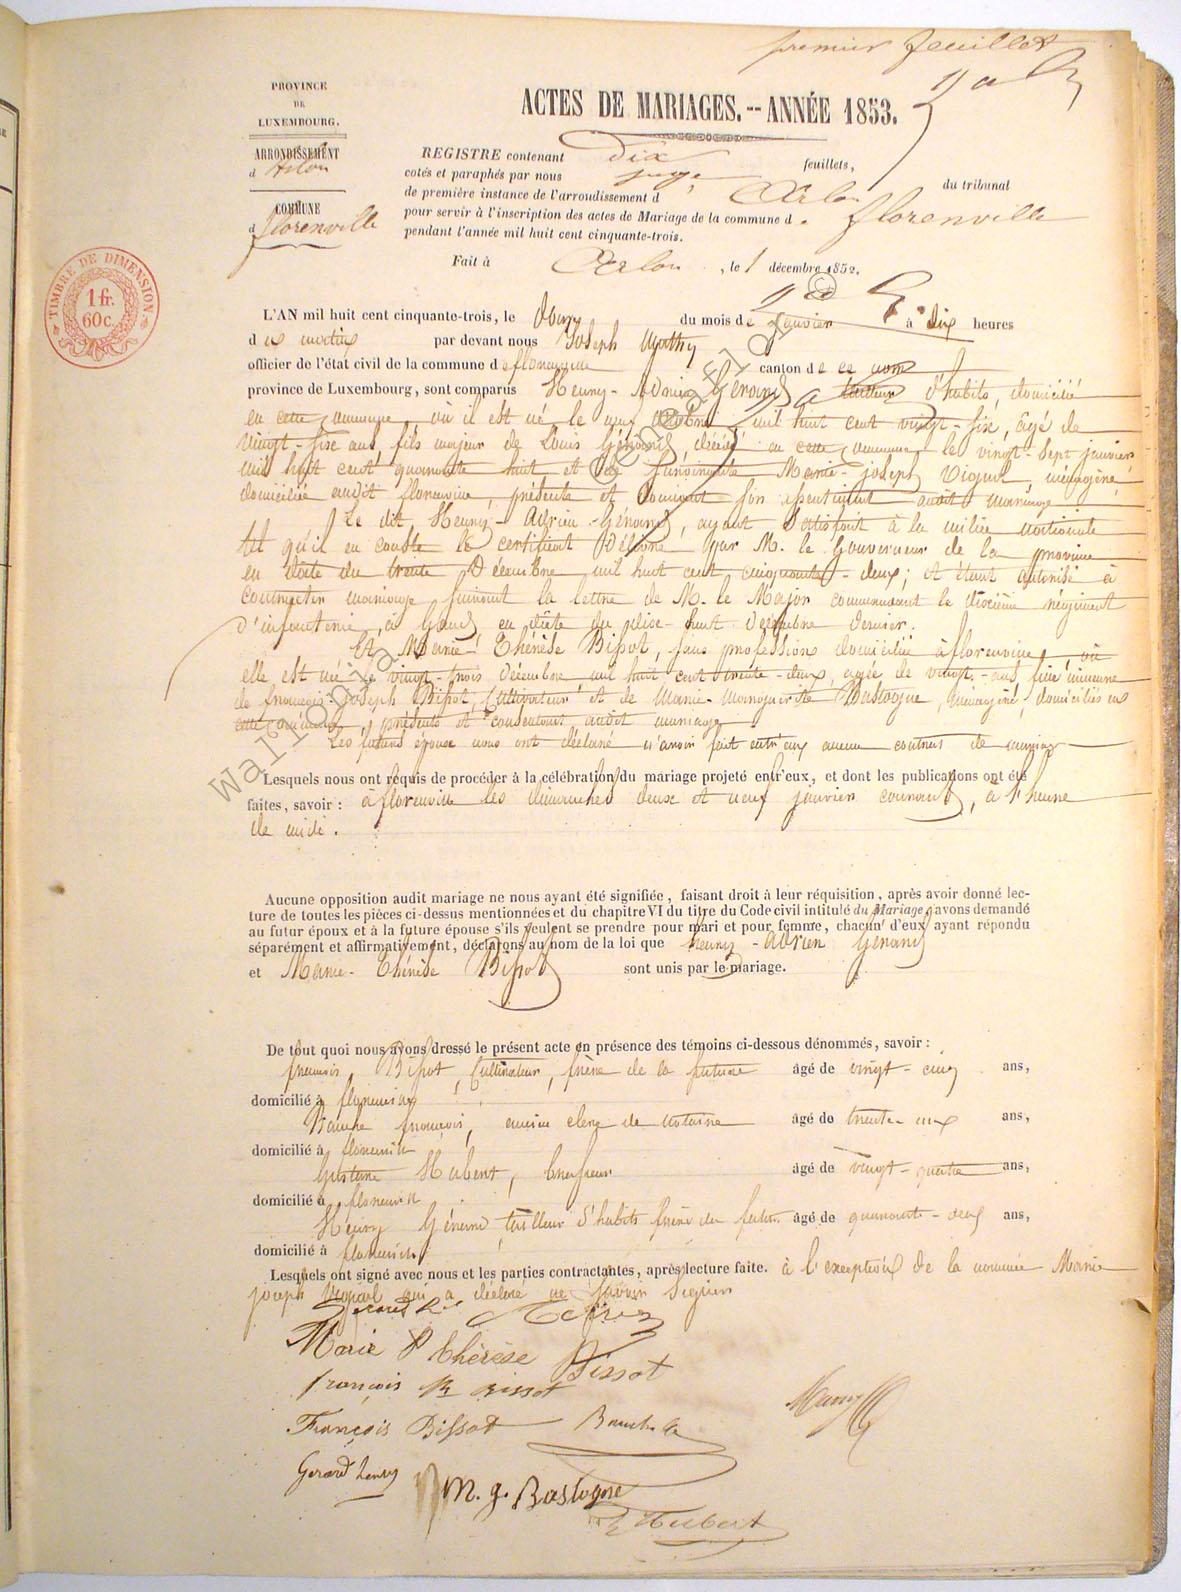 premier feuillet
PROVINCE
DE
LUXEMBOURG.
ARRONDISSEMENT
d Arlon
COMMUNE
d florenville
TIMBRE DE DIMENSION
1 fr.
60c.
ACTES DE MARIAGES.-- ANNÉE 1853.
REGISTRE contenant Dix feuillets,
cotés et paraphés par nous juge du tribunal
de première instance de l'arrondissement d Arlon
pour servir à l'inscription des actes de Mariage de la commune d florenville
pendant l'année mil huit cent cinquante-trois.
Fait à Arlon, le 1 décembre 1852.
L'AN mil huit cent cinquante-trois, le douze du mois de janvier à dix heures
d u matin par devant nous Joseph Mathy
officier de l'état civil de la commune de florenville canton de ce nom
province de Luxembourg, sont comparus Henry-Adrien Gérard tailleur d'habits, domicilié
en cette commune, où il est né le neuf octobre mil huit cent vingt-six, âgé de
vingt-six ans fils majeur de Louis Gérard, décédé en cette commune le vingt-sept janvier
mil huit cent quarante huit et de Marie-joseph ménagère,
domiciliée audit florenville, présente et donnant son assentiment audit mariage
Le dit Henry-Adrien Gérard, ayant satisfait à la milice nationale
tel qu'il en conste le certificat délivré par M. le Gouverneur de la province
en date du trente Décembre mil huit cent cinquante-deux; et étant autorisé à
contracter mariage suivant la lettre de M. le Major commandant le dixième régiment
d'infanterie, à Gand en date du dix-huit décembre dernier.
Et Marie Thérèse Bissot, sans profession domiciliée à florenville, où
elle est née le vingt-trois décembre mil huit cent trente-deux, agée de vingt-ans fille mineure
de françois-joseph Bissot, Cultivateur et de Marie-Marguerite Bastogne, ménagère, domiciliés en
cette commune, présents et consentant audit mariage
Les futurs époux nous ont déclaré n'avoir fait entr'eux aucun contrat de mariage
Lesquels nous ont requis de procéder à la célébration du mariage projeté entr'eux, et dont les publications ont été
faites, savoir : à florenville les dimanches deux et neuf janvier courant, à l'heure
de midi.
Aucune opposition audit mariage ne nous ayant été signifiée, faisant droit à leur réquisition, après avoir donné lec-
ture de toutes les pièces ci-dessus mentionnées et du chapitre VI du titre du Code civil intitulé du Mariage, avons demandé
au futur époux et à la future épouse s'ils veulent se prendre pour mari et pour femme, chacun d'eux ayant répondu
séparément et affirmativement, déclarons au nom de la loi que henry-adrien Gérard
et Marie-Thérèse Bissot sont unis par le mariage.
De tout quoi nous avons dressé le présent acte en présence des témoins ci-dessous dénommés, savoir :
francois Bissot, Cultivateur, frère de la future âgé de vingt-cinq ans,
domicilié à florenville
françois, ancien clerc de notaire âgé de trente-un ans,
domicilié à florenville
Gustave Hubert, brasseur âgé de vingt-quatre ans,
domicilié à florenville
Henry Gérard tailleur d'habits frère du futur âgé de quarante-deux ans,
domicilié à florenville
Lesquels ont signé avec nous et les parties contractantes, après lecture faite. à l'exception de la nommée Marie
joseph qui a déclaré ne savoir signer
Marie Thérèse Bissot
françois Bissot
François Bissot
Gerard henry
M. g. Bastogne
Hubert